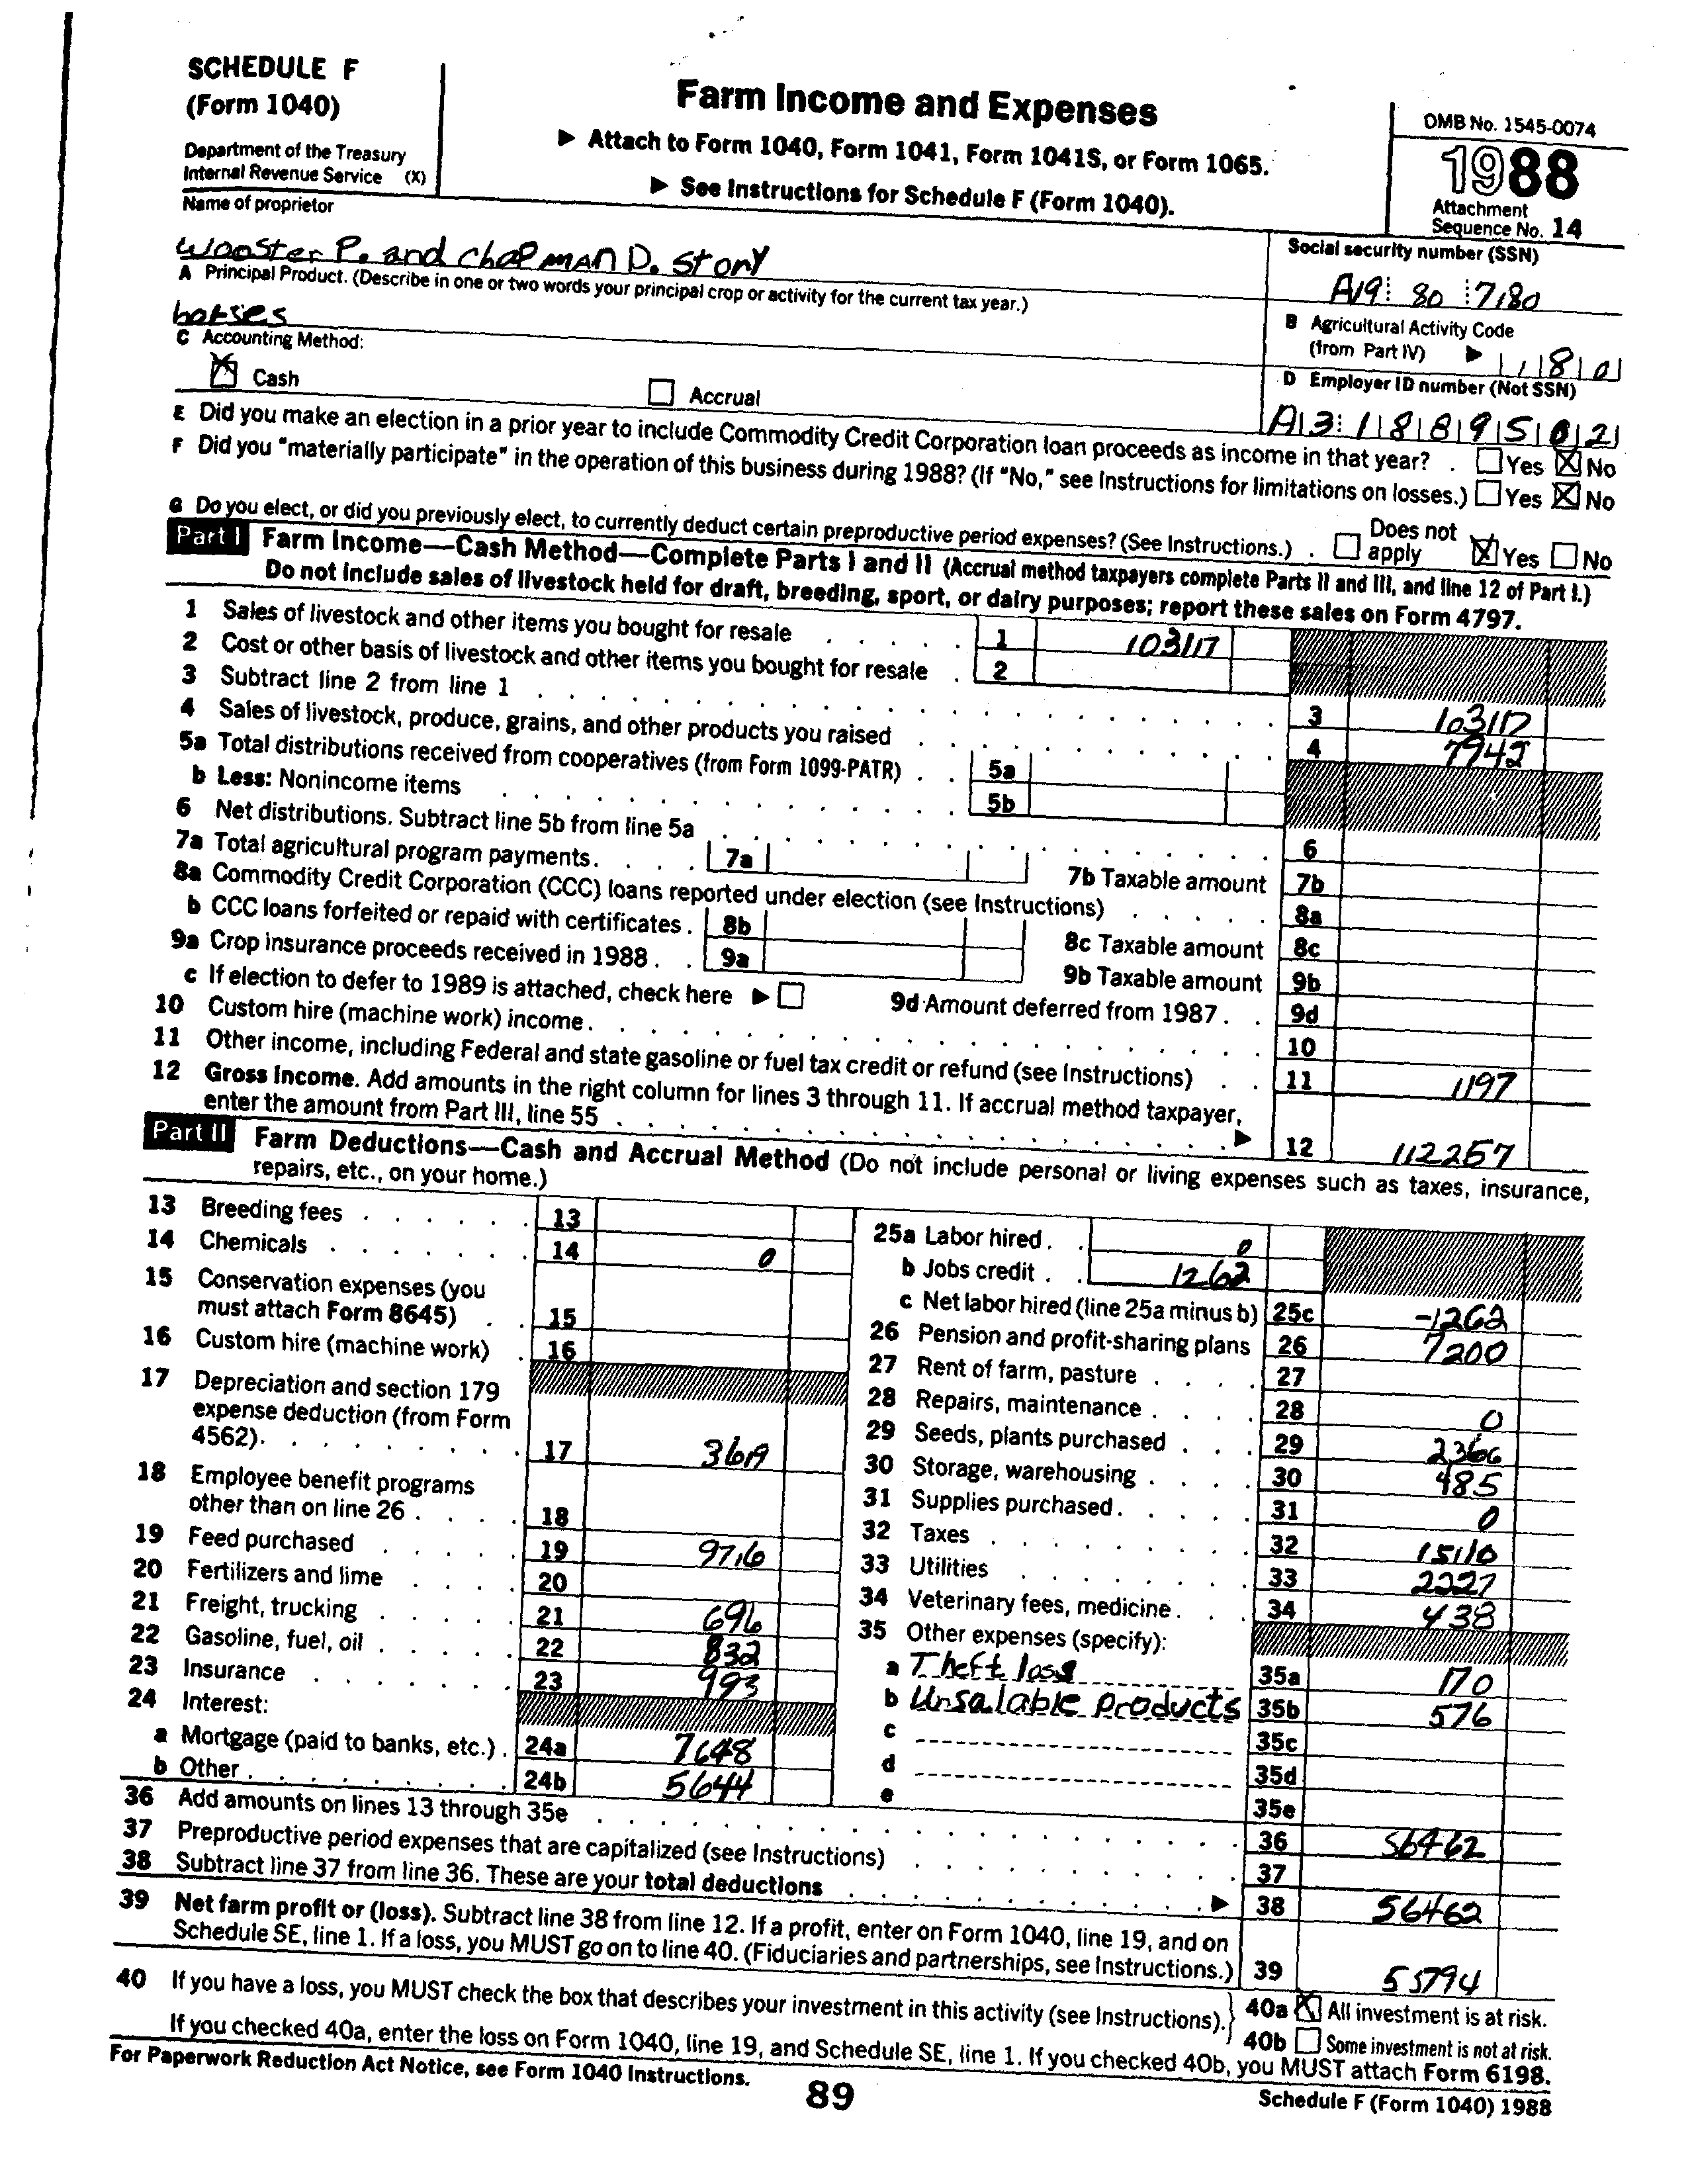 SCHEDULE F
(Form 1040)
Department of the Treasury
Internal Revenue Service (X)
Farm Income and Expenses
▶ Attach to Form 1040, Form 1041, Form 1041S, or Form 1065.
▶ See Instructions for Schedule F (Form 1040).
OMB No. 1545-0074
1988
Attachment
Sequence No. 14
Name of proprietor
Wooster P. and Chapman D. Story
Social security number (SSN)
A19 80 7180
A Principal Product. (Describe in one or two words your principal crop or activity for the current tax year.)
horses
B Agricultural Activity Code
(from Part IV) ▶ 180
C Accounting Method:
Cash
Accrual
D Employer ID number (Not SSN)
A3 1889502
E Did you make an election in a prior year to include Commodity Credit Corporation loan proceeds as income in that year? . Yes No
F Did you "materially participate" in the operation of this business during 1988? (If "No," see Instructions for limitations on losses.) Yes No
G Do you elect, or did you previously elect, to currently deduct certain preproductive period expenses? (See Instructions.) . Does not apply Yes No
Part I Farm Income—Cash Method—Complete Parts I and II (Accrual method taxpayers complete Parts II and III, and line 12 of Part I.)
Do not include sales of livestock held for draft, breeding, sport, or dairy purposes; report these sales on Form 4797.
1 Sales of livestock and other items you bought for resale 1 103117
2 Cost or other basis of livestock and other items you bought for resale 2
3 Subtract line 2 from line 1 3 103117
4 Sales of livestock, produce, grains, and other products you raised 4 7942
5a Total distributions received from cooperatives (from Form 1099-PATR) 5a
b Less: Nonincome items 5b
6 Net distributions. Subtract line 5b from line 5a 6
7a Total agricultural program payments 7a 7b Taxable amount 7b
8a Commodity Credit Corporation (CCC) loans reported under election (see Instructions) 8a
b CCC loans forfeited or repaid with certificates 8b 8c Taxable amount 8c
9a Crop insurance proceeds received in 1988 9a 9b Taxable amount 9b
c If election to defer to 1989 is attached, check here ▶ 9d Amount deferred from 1987 9d
10 Custom hire (machine work) income 10
11 Other income, including Federal and state gasoline or fuel tax credit or refund (see Instructions) 11 1197
12 Gross Income. Add amounts in the right column for lines 3 through 11. If accrual method taxpayer,
enter the amount from Part III, line 55 ▶ 12 112257
Part II Farm Deductions—Cash and Accrual Method (Do not include personal or living expenses such as taxes, insurance,
repairs, etc., on your home.)
13 Breeding fees 13
14 Chemicals 14 0
15 Conservation expenses (you
must attach Form 8645) 15
16 Custom hire (machine work) 16
17 Depreciation and section 179
expense deduction (from Form
4562) 17
18 Employee benefit programs
other than on line 26 18
19 Feed purchased 19 9716
20 Fertilizers and lime 20
21 Freight, trucking 21 696
22 Gasoline, fuel, oil 22 832
23 Insurance 23 993
24 Interest:
a Mortgage (paid to banks, etc.) 24a 7648
b Other 24b 5644
25a Labor hired 0
b Jobs credit 1262
c Net labor hired (line 25a minus b) 25c -1262
26 Pension and profit-sharing plans 26 7200
27 Rent of farm, pasture 27
28 Repairs, maintenance 28 0
29 Seeds, plants purchased 29 2366
30 Storage, warehousing 30 485
31 Supplies purchased 31 0
32 Taxes 32 15110
33 Utilities 33 2227
34 Veterinary fees, medicine 34 438
35 Other expenses (specify):
a Theft loss 35a 170
b Unsalable products 35b 576
c 35c
d 35d
e 35e
36 Add amounts on lines 13 through 35e 36 56462
37 Preproductive period expenses that are capitalized (see Instructions) 37
38 Subtract line 37 from line 36. These are your total deductions ▶ 38 56462
39 Net farm profit or (loss). Subtract line 38 from line 12. If a profit, enter on Form 1040, line 19, and on
Schedule SE, line 1. If a loss, you MUST go on to line 40. (Fiduciaries and partnerships, see Instructions.) 39 55794
40 If you have a loss, you MUST check the box that describes your investment in this activity (see Instructions). 40a All investment is at risk.
If you checked 40a, enter the loss on Form 1040, line 19, and Schedule SE, line 1. If you checked 40b, you MUST attach Form 6198. 40b Some investment is not at risk.
For Paperwork Reduction Act Notice, see Form 1040 Instructions.
89
Schedule F (Form 1040) 1988